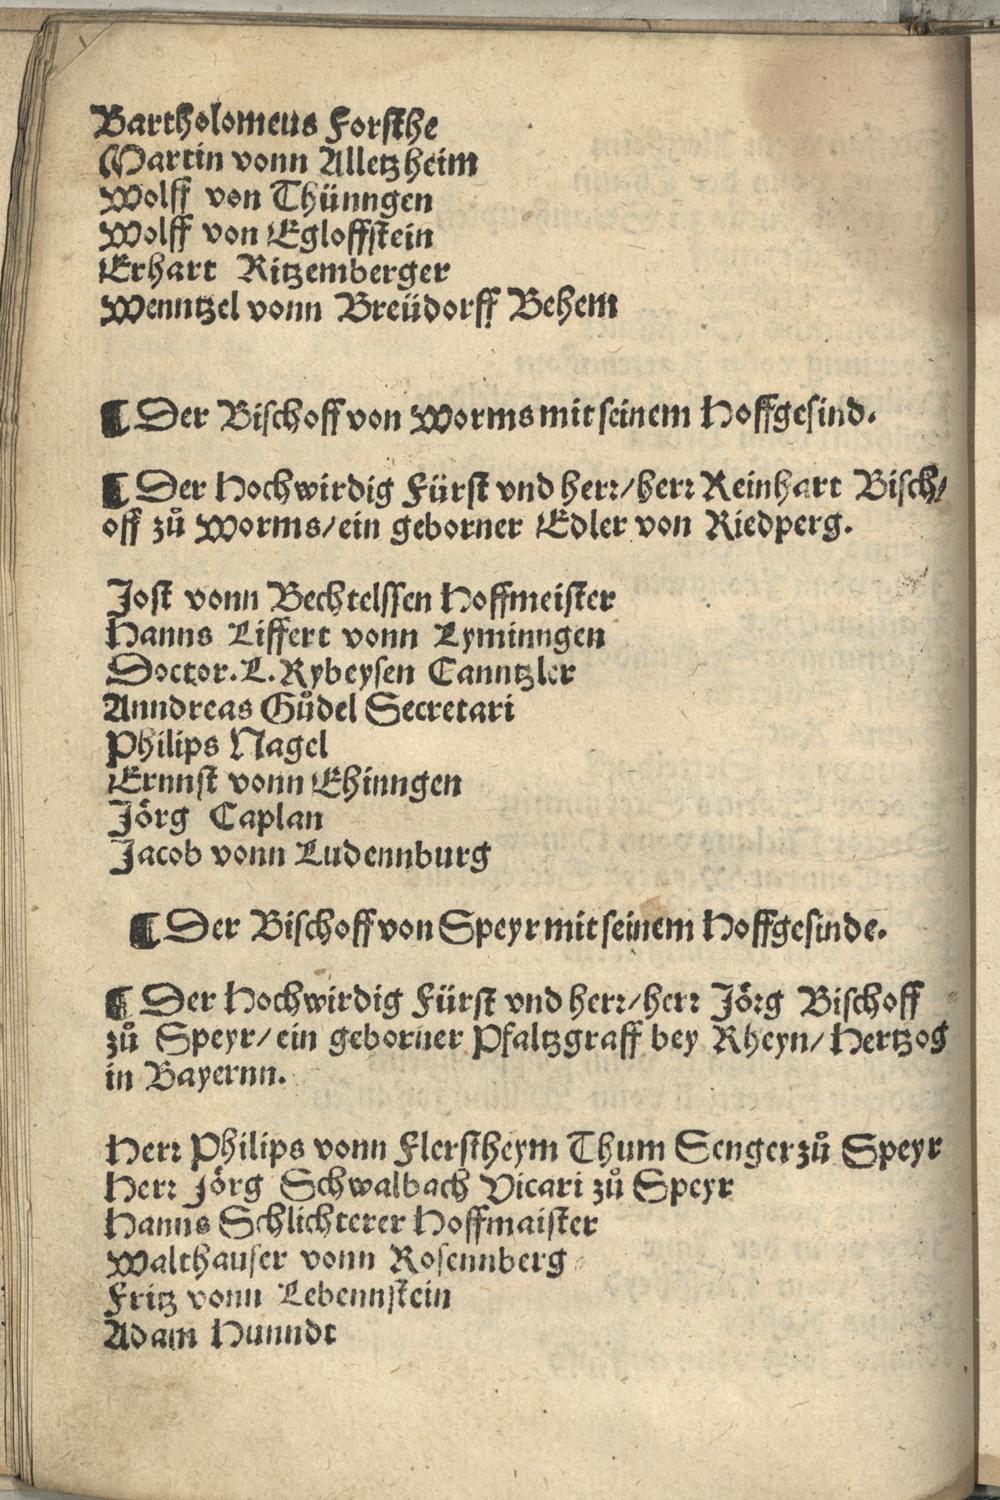 Bartholomeus Forsthe
Martin vonn Alletzheim
Wolff von Thünngen
Wolff von Egloffstein
Erhart Ritzemberger
Wenntzel vonn Breüdorff Behem
¶ Der Bischoff von Worms mit seinem Hoffgesind.
¶ Der Hochwirdig Fürst vnd herr/herr Reinhart Bisch/
off zů Worms/ein geborner Edler von Riedperg.
Jost vonn Bechtelssen Hoffmeister
Hanns Liffert vonn Lyminngen
Doctor. L. Rybeysen Canntzler
Anndreas Gůdel Secretari
Philips Nagel
Ernnst vonn Ehinngen
Jörg Caplan
Jacob vonn Ludennburg
¶ Der Bischoff von Speyr mit seinem Hoffgesinde.
¶ Der Hochwirdig Fürst vnd herr/herr Jörg Bischoff
zů Speyr/ein geborner Pfaltzgraff bey Rheyn/Hertzog
in Bayernn.
Herr Philips vonn Flerstheym Thum Senger zů Speyr
Herr Jörg Schwalbach Vicari zů Speyr
Hanns Schlichterer Hoffmaister
Walthauser vonn Rosennberg
Fritz vonn Lebennstein
Adam Hunndt